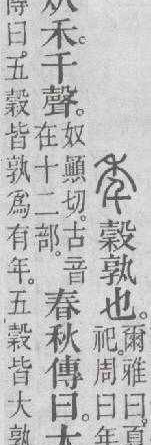 秊穀孰也。爾雅曰。夏
祀。周曰年
从禾。千聲。奴顚切。古音
在十二部。春秋傳曰。大
傳曰。五穀皆孰爲有年。五穀皆大孰